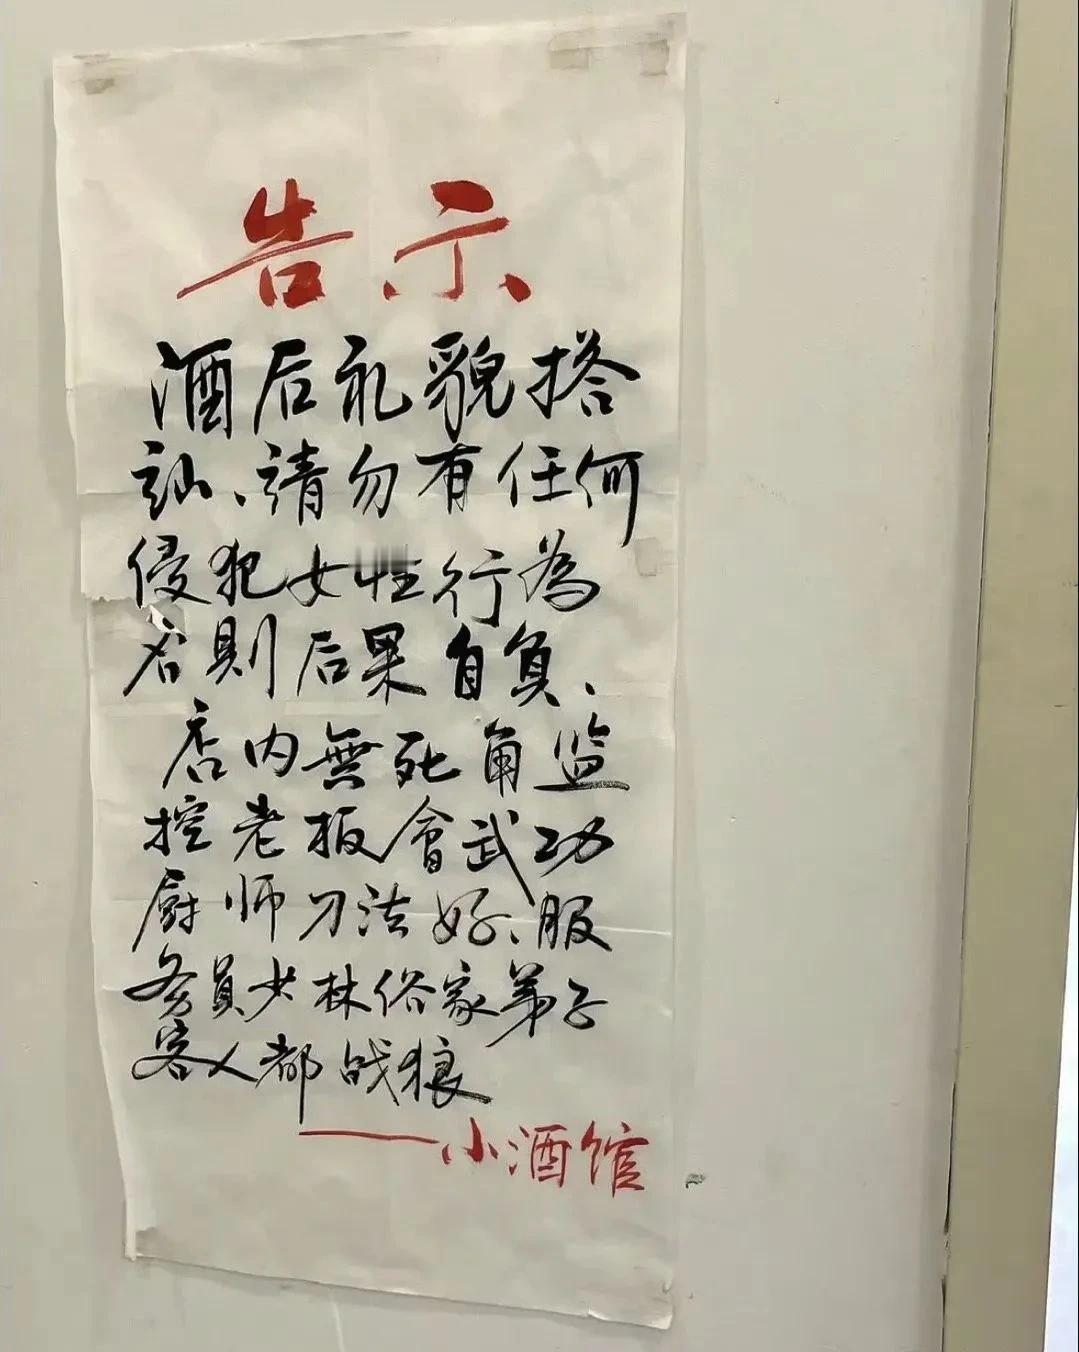 告示
酒后礼貌搭
訕、請勿有任何
侵犯女性行為
否則后果自負、
店内無死角监
控老板會武功
厨师刀法好、服
务員少林俗家弟子
客人都战狼
——小酒馆